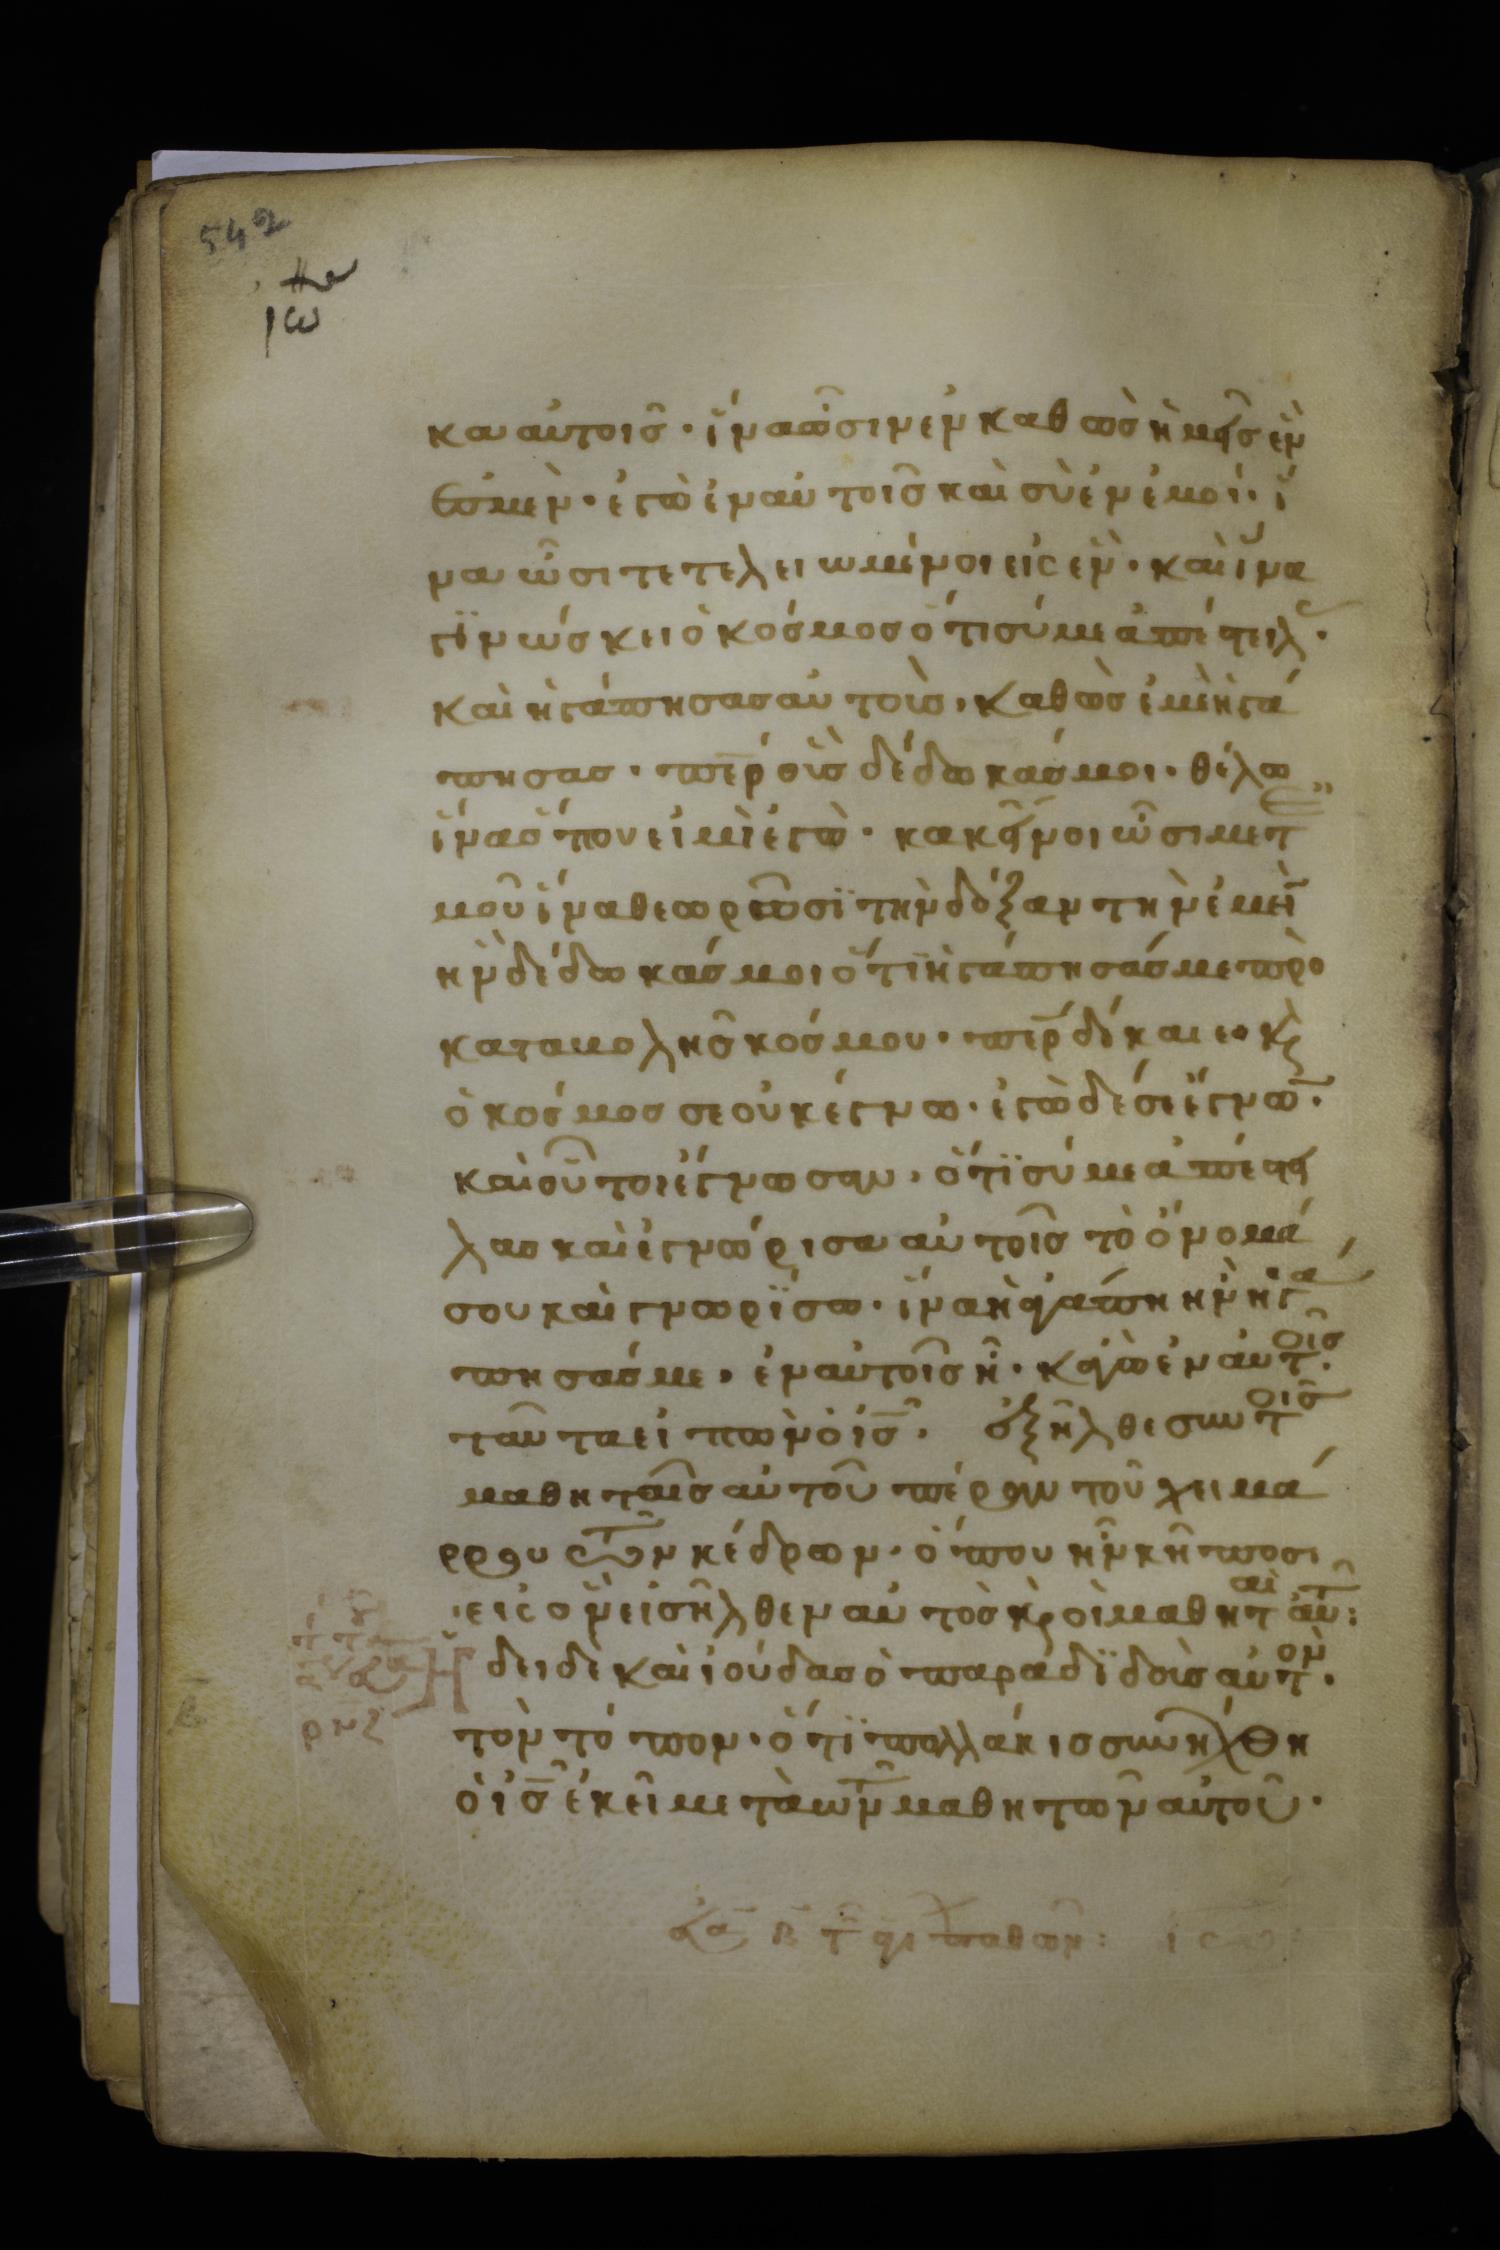 542
ιω
κα αὐτοῖς · ἵνα ὦσιν ἓν καθὼς ἡμεῖς ἓν
ἐσμὲν · ἐγὼ ἐν αὐτοῖς καὶ σὺ ἐν ἐμοί · ἵ
να ὦσι τετελειωμένοι εἰς ἓν · καὶ ἵνα
γϊνώσκει ὁ κόσμος ὅτι σύ με ἀπέστειλ ·
καὶ ἠγάπησας αὐτοὺς · καθὼς ἐμὲ ἠγά
πησας · περ οὓς δέδωκάς μοι · θέλω
ἵνα ὅπου εἰμὶ ἐγὼ · κακεῖνοι ὦσι μετ ε
μοῦ ἵνα θεωρῶσϊ τὴν δόξαν τὴν ἐμὴν
ἣν δέδωκάς μοι ὅτϊ ἠγάπησάς με πρὸ
καταβολῆς κόσμου · περ δίκαιε · κ
ὁ κόσμος σε οὐκ έγνω · ἐγὼ δέ σε ἔγνω ·
καὶ οὗτοι ἔγνωσαν · ὅτϊ σύ με ἀπέστει
λας καὶ ἐγνώρισα αὐτοῖς τὸ ὄνομά
σου καὶ γνωρϊσω · ἵνα ἡ ἀγάπη ἣν ἠγά
πησάς με · ἐν αὐτοῖς ἦ · κἀγὼ ἐν αὐτοῖς ·
ταῦτα εἰπὼν ὁ ις · ἐξῆλθε συν τοις
μαθηταῖς αὐτοῦ πέραν τοῦ χειμά
ρρου τῶν κέδρων · ὅπου ἦν κῆπος ·
εἰς ὃν εἰσῆλθεν αὐτὸς κ οἱ μαθηταὶ αυτ :
Ηδει δε καὶ ἰούδας ὁ παραδϊδοὺς αὐτὸν ·
ρνζ
τὸν τόπον · ὅτϊ πολλάκις συνήχθη
ὁ ις ἐκεῖ μετὰ τῶν μαθητῶν αὐτοῦ ·